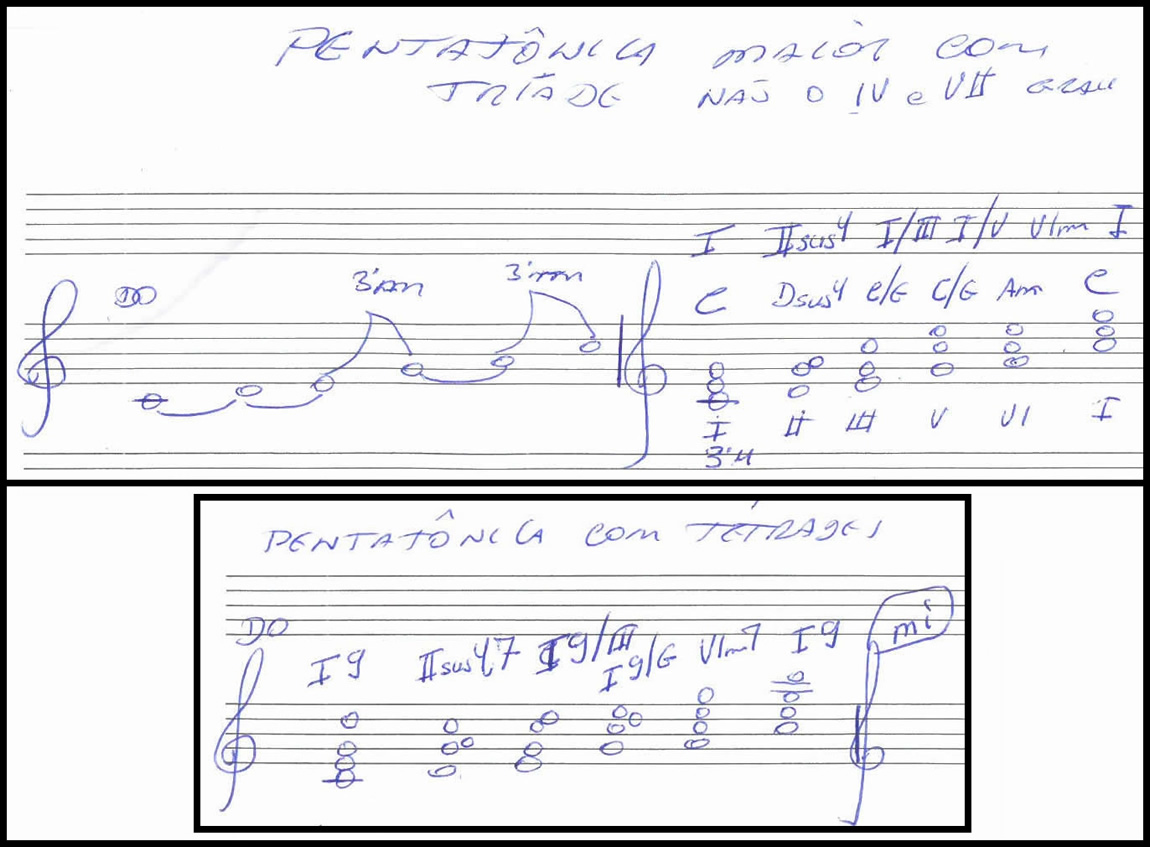 PENTATÔNICA MAIOR COM
TRÍADE NÃO O IV e VII GRAU
I IIsus4 I/III I/V VIm I
DO 3ªm 3ªm C Dsus4 C/E C/G Am C
I II III V VI I
3ªM
PENTATÔNICA COM TÉTRADES
DO I9 IIsus4,7 I9/III I9/G VIm7 I9 mi